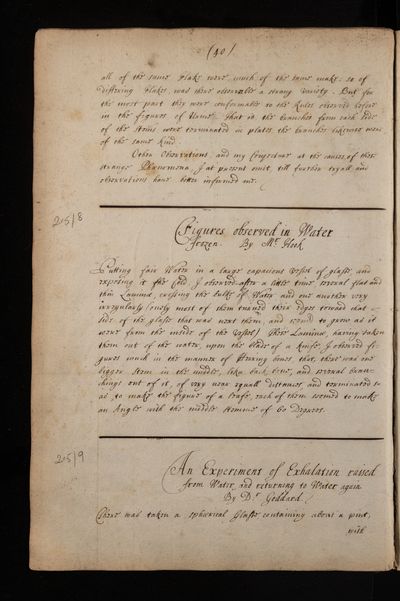 (40)
all of the same Flake were much of the same make: so of
differing Flakes, was there observable a strang variety. But for
the most part they were conformable to the Rules observed before
in the figures of Urine. That is, the branches from each side
of the Stems were terminated in plates, the branches likewise were
of the same kind.
Other Observations, and my Conjecture at the causes of these
strange Phænomena I at present omit, till further tryalls and
observations have better informed me.
215/8
Figures observed in Water
frozen. By Mr. Hook.
Putting fair Water in a large capacious Vessel of glass, and
exposing it to the Cold, I observed after a little time several flat and
thin Laminæ, crossing the bulk of Water and one another very
irregularly (only most of them turned their edges toward that
side of the glasse that was next them, and seem'd to grow as it
were from the inside of the Vessel) These Laminæ, having taken
them out of the water, upon the blade of a knife, I observed fi-
gures much in the manner of Herring bones that, there was one
bigger stem in the middle, like a back bone, and several bran-
chings out of it, of very near equall distances, and terminated so
as to make the figure of a leafe, each of them seemed to make
an Angle with the middle stemme of 60 Degrees.
215/9
An Experiment of Exhalation raised
from Water, and returning to Water again
By Dr. Goddard
There was taken a spherical Glasse containing about a pint,
with